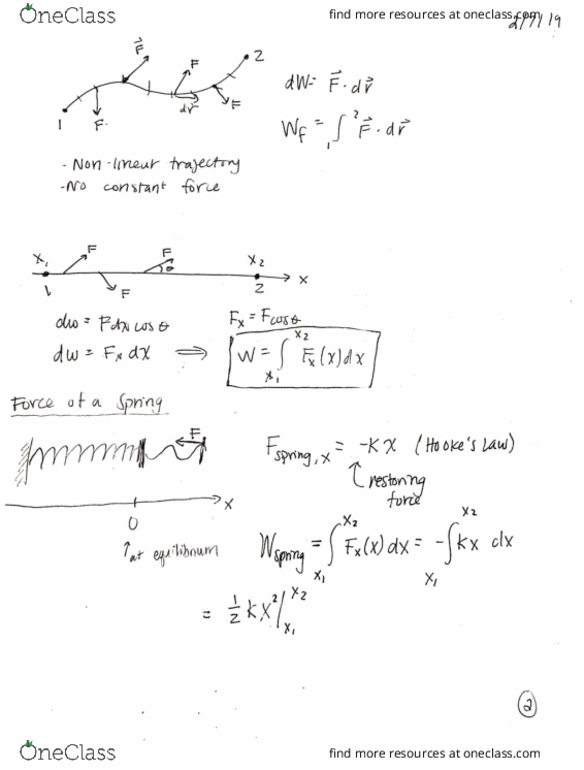 OneClass find more resources at oneclass.com
2/7/19
F⃗ F F dr⃗ F 1 2
dW = F⃗ · dr⃗
W_F = ∫₁² F⃗ · dr⃗
- Non-linear trajectory
- No constant force
x₁ F F θ F x₂ x
1 2
dw = F dx cos θ F_x = F cos θ
dw = F_x dx ⟹ W = ∫_{x₁}^{x₂} F_x(x) dx
Force of a Spring
F x
0
↑ at equilibrium
F_{spring, x} = -Kx (Hooke's Law)
restoring
force
W_{spring} = ∫_{x₁}^{x₂} F_x(x) dx = -∫_{x₁}^{x₂} Kx dx
= ½ Kx² |_{x₁}^{x₂}
2
OneClass find more resources at oneclass.com